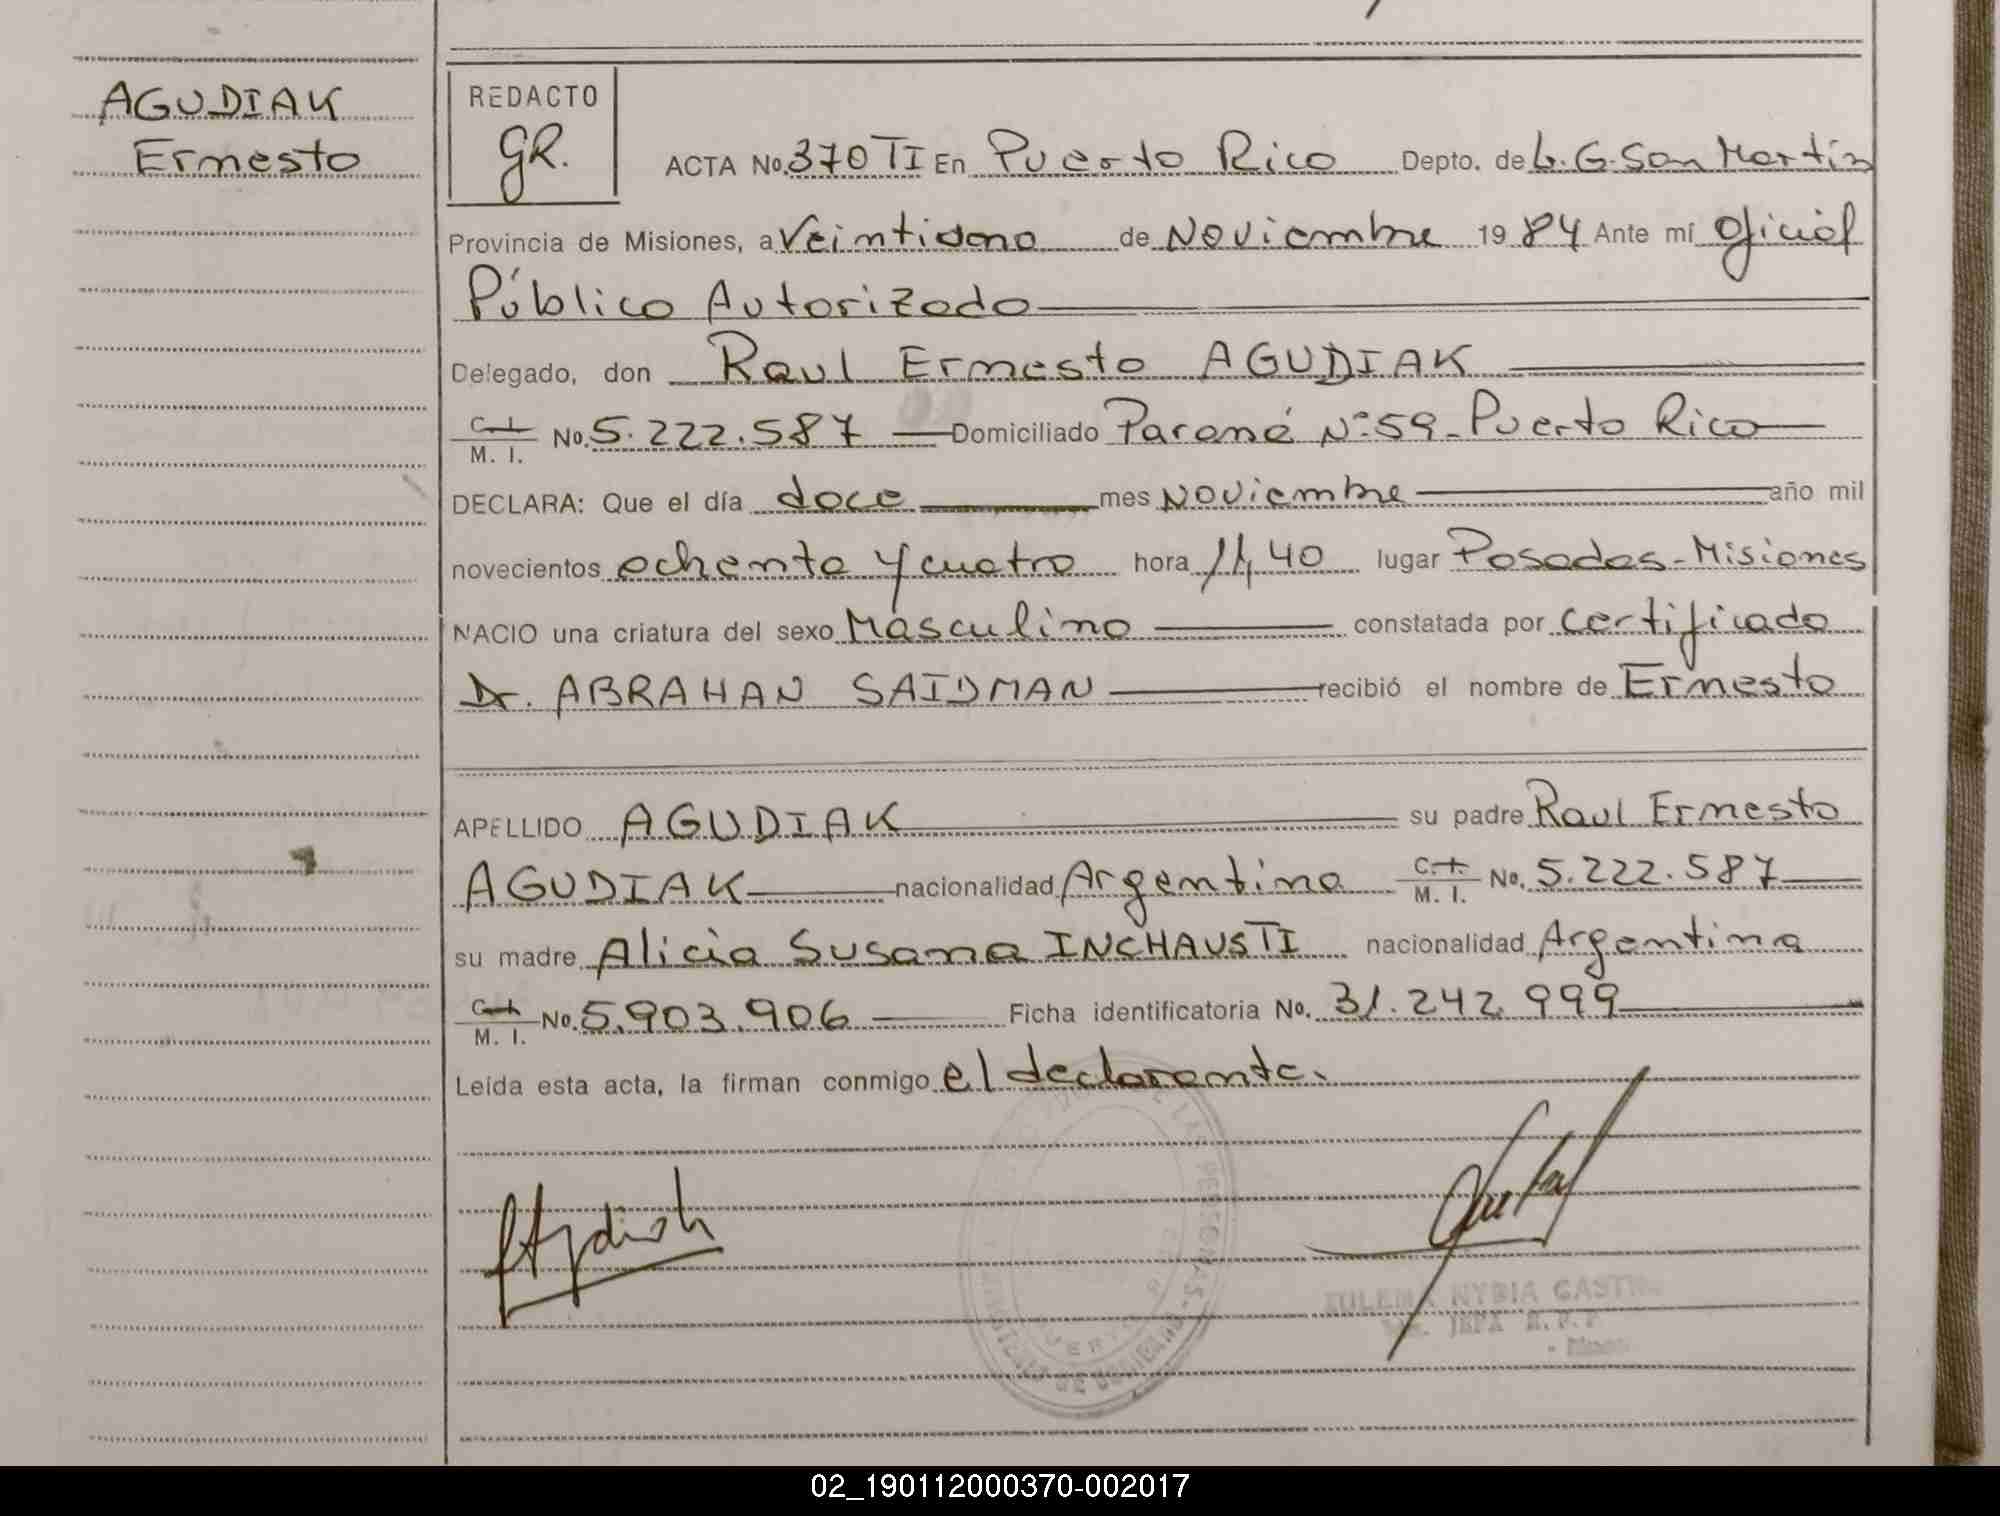 AGUDIAK
Ernesto
REDACTO
GR.
ACTA No. 370 TI En Puerto Rico Depto. de L. G. San Martín
Provincia de Misiones, a Veintidono de Noviembre 1984 Ante mí Oficial
Público Autorizado
Delegado, don Raul Ernesto AGUDIAK
C. I. M. I. No. 5.222.587 Domiciliado Paraná Nº 59 - Puerto Rico
DECLARA: Que el día doce mes Noviembre año mil
novecientos ochenta y cuatro hora 11,40 lugar Posadas - Misiones
NACIO una criatura del sexo Masculino constatada por certificado
Dr. ABRAHAN SAIDMAN recibió el nombre de Ernesto
APELLIDO AGUDIAK su padre Raul Ernesto
AGUDIAK nacionalidad Argentina C. I. M. I. No. 5.222.587
su madre Alicia Susana INCHAUSTI nacionalidad Argentina
C. I. M. I. No. 5.903.906 Ficha identificatoria No. 31.242.999
Leída esta acta, la firman conmigo el declarante.
DE LAS PERSONAS
NYBIA CASTR
JEFA R. P. P.
02_190112000370-002017